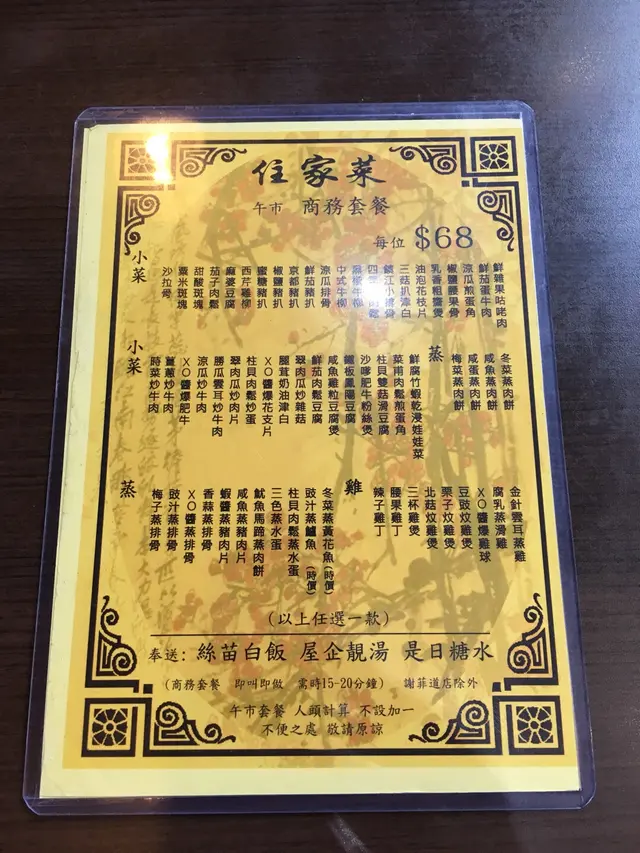 住家菜
午市 商務套餐
每位 $68
小菜
沙拉骨
粟米斑塊
甜酸斑塊
茄子肉鬆
麻婆豆腐
西芹雞柳
蜜糖豬扒
椒鹽豬扒
京都豬扒
鮮茄豬扒
涼瓜排骨
中式牛柳
黑椒牛柳
鎮江小排骨
三菇扒津白
油泡花枝片
乳香粗齋煲
椒鹽腰果骨
涼瓜煎蛋角
鮮茄蛋牛肉
鮮雜果咕咾肉
小菜
時菜炒牛肉
薑蔥炒牛肉
XO醬爆肥牛
涼瓜炒牛肉
勝瓜雲耳炒牛肉
翠肉瓜炒肉片
柱貝肉鬆炒蛋
XO醬爆花支片
腿茸奶油津白
翠肉瓜炒雜菇
鮮茄肉鬆豆腐
咸魚雞粒豆腐煲
鐵板鳳陽豆腐
沙嗲肥牛粉絲煲
柱貝雙菇滑豆腐
菜甫肉鬆煎蛋角
鮮腐竹蝦乾浸娃娃菜
蒸
梅菜蒸肉餅
咸蛋蒸肉餅
咸魚蒸肉餅
冬菜蒸肉餅
蒸
梅子蒸排骨
豉汁蒸排骨
XO醬蒸排骨
香蒜蒸排骨
蝦醬蒸豬肉片
咸魚蒸豬肉片
魷魚馬蹄蒸肉餅
三色蒸水蛋
柱貝肉鬆蒸水蛋
豉汁蒸鱸魚(時價)
冬菜蒸黃花魚(時價)
雞
辣子雞丁
腰果雞丁
三杯雞煲
北菇炆雞煲
栗子炆雞煲
豆豉炆雞煲
XO醬爆雞球
腐乳蒸滑雞
金針雲耳蒸雞
(以上任選一款)
奉送: 絲苗白飯 屋企靚湯 是日糖水
(商務套餐 即叫即做 需時15-20分鐘) 謝菲道店除外
午市套餐 人頭計算 不設加一
不便之處 敬請原諒